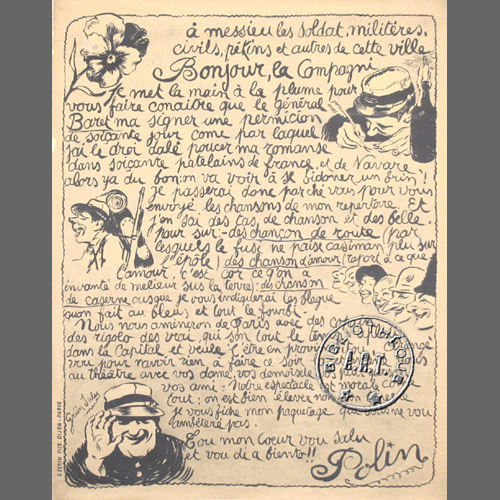 à messieu les soldat, militères,
civils, pékins et autres de cette ville
Bonjour, la Compagni
Je met la main à la plume pour
vous faire conaitre que le général
Baret ma signer une permicion
de soiçante jour come par laquel
j'ai le droi dalé poucer ma romanse
dans soiçante patelains de france, et de Navare
alors ya du bon on va voir à se bidoner un brin!
Je passerai donc par ché vous pour vous
envoyé les chansons de mon repertoire. Et
j'en sai des tas de chanson et des belle
pour sur:- des chançon de route (par
lesquels le fusi ne paise casiman plu sur
l'épôle) des chanson d'amour (raport à ce que
l'amour, c'est cor ce q'on a
invanté de melieur sus la terre); des chanson
de caserne ousque je vous indiquerai les blague
quon fait au bleus et tout le fourbi.
Nous nous amèneron de Paris avec des
des rigolo des vrai, qui son tout le
dans la Capital, et veule t'être en provin
vou pour navoir rien à faire ce soir
au théatre avec vos dame vos demoiselle
vos ami. Notre espectacle est moral
tout; on est bien élever
je vous fiche mon paquetage que vous ne vou
ambèterè pas.
Tou mon Coeur vou salu
et vou di a biento!!
Polin
BIBLIOTHEQUE
ART.
GERFIN FILS. DIJON-PARIS